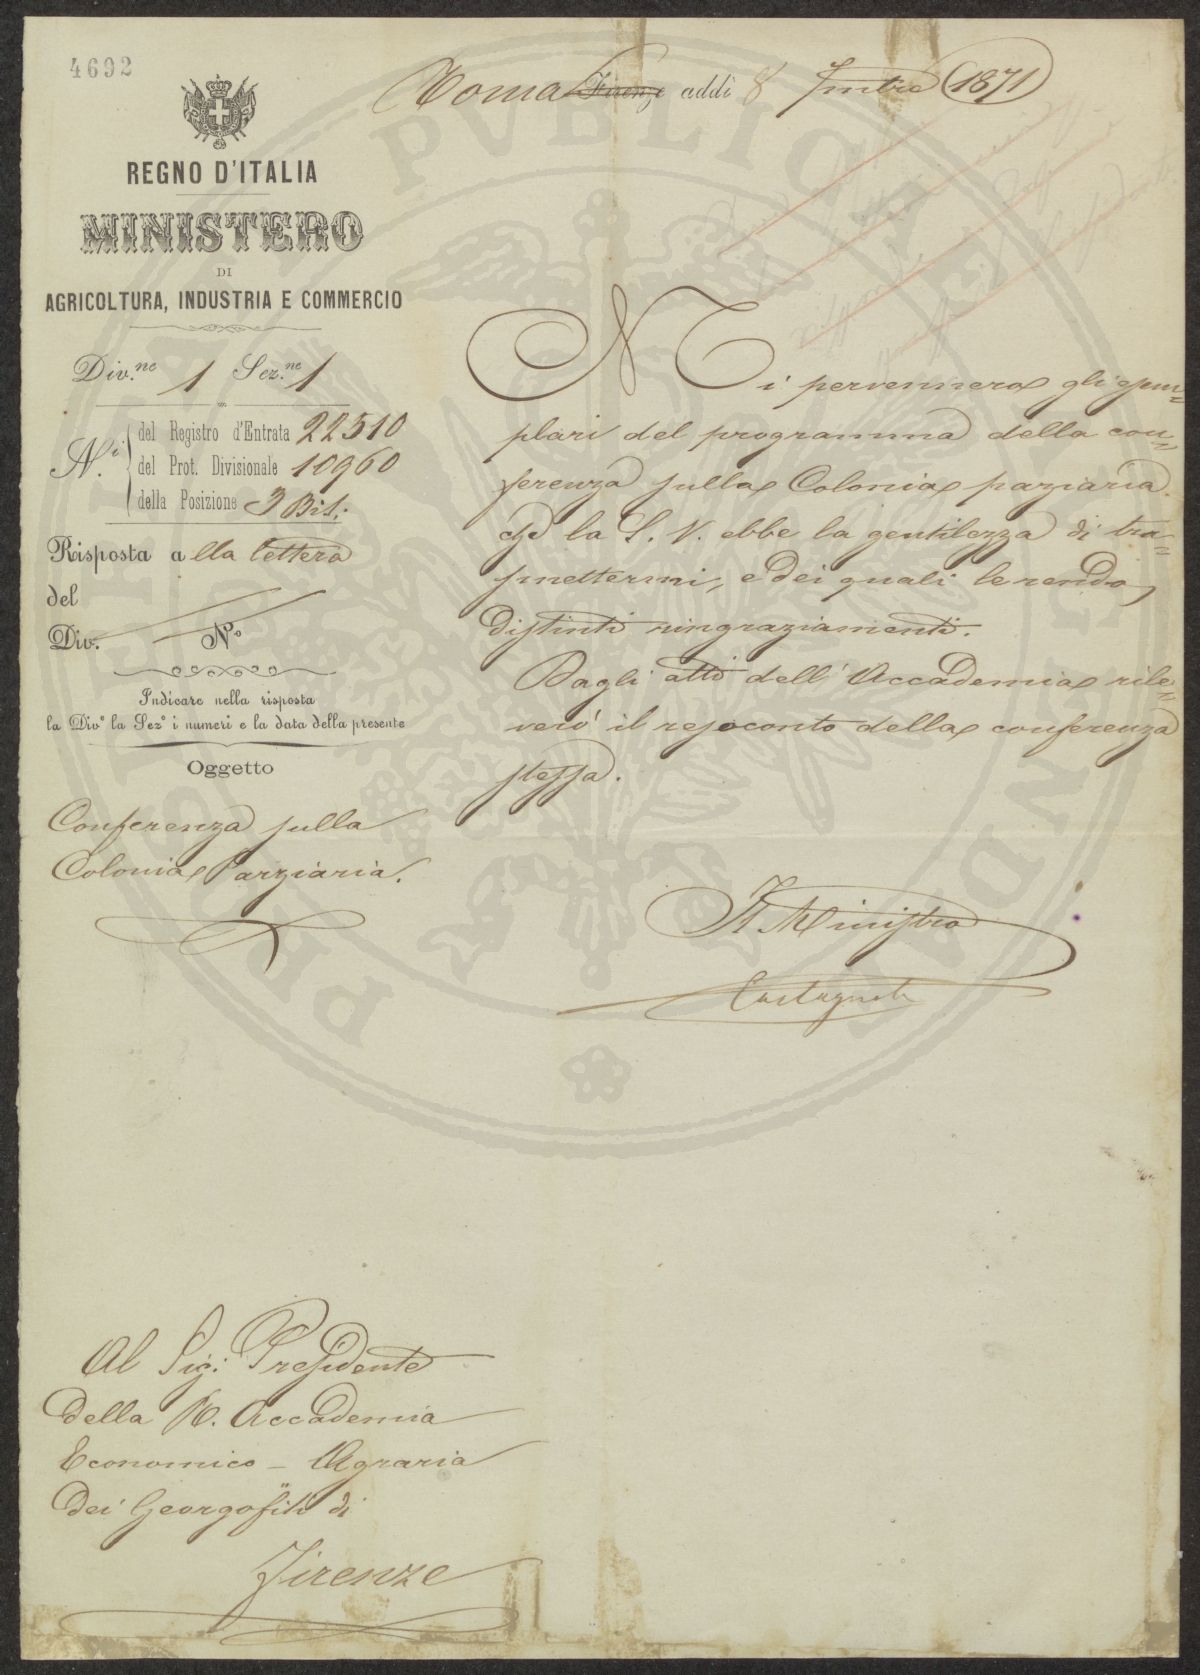 4692
Roma Firenze addì 8 7mbre 1871
REGNO D'ITALIA
MINISTERO
DI
AGRICOLTURA, INDUSTRIA E COMMERCIO
Div.ne 1 Sez.ne 1
N.i
del Registro d'Entrata 22510
del Prot. Divisionale 10960
della Posizione 3 Bis.
Risposta alla lettera
del
Div. N.o
Indicare nella risposta
la Div.e la Sez.e i numeri e la data della presente
Oggetto
Conferenza sulla
Colonia Parziaria.
Mi pervennero gli esem=
plari del programma della con=
ferenza sulla Colonia parziaria
che la S. V. ebbe la gentilezza di tra=
smettermi, e dei quali le rendo
distinti ringraziamenti.
Dagli atti dell'Accademia rile=
verò il resoconto della conferenza
stessa.
Il Ministro
Castagnola
Al Sig: Presidente
della R. Accademia
Economico - Agraria
dei Georgofili di
Firenze
PVBLICAE